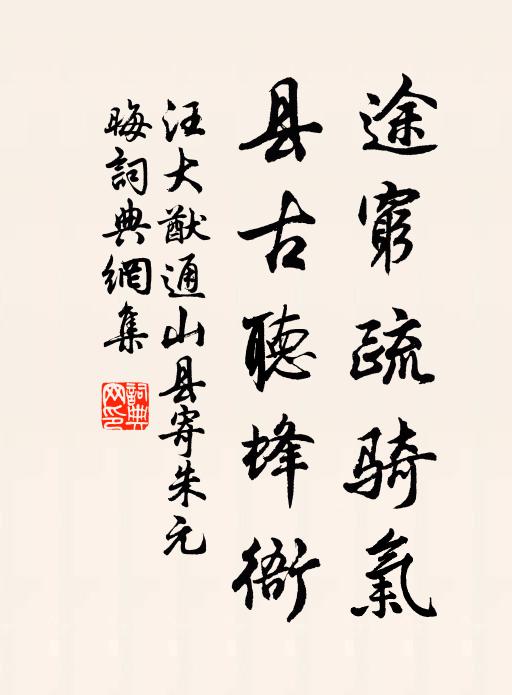 途窮疏骑氣
县古聴蜂衙
汪大猷通山县寄朱元
晦詞典網集
詞典网印